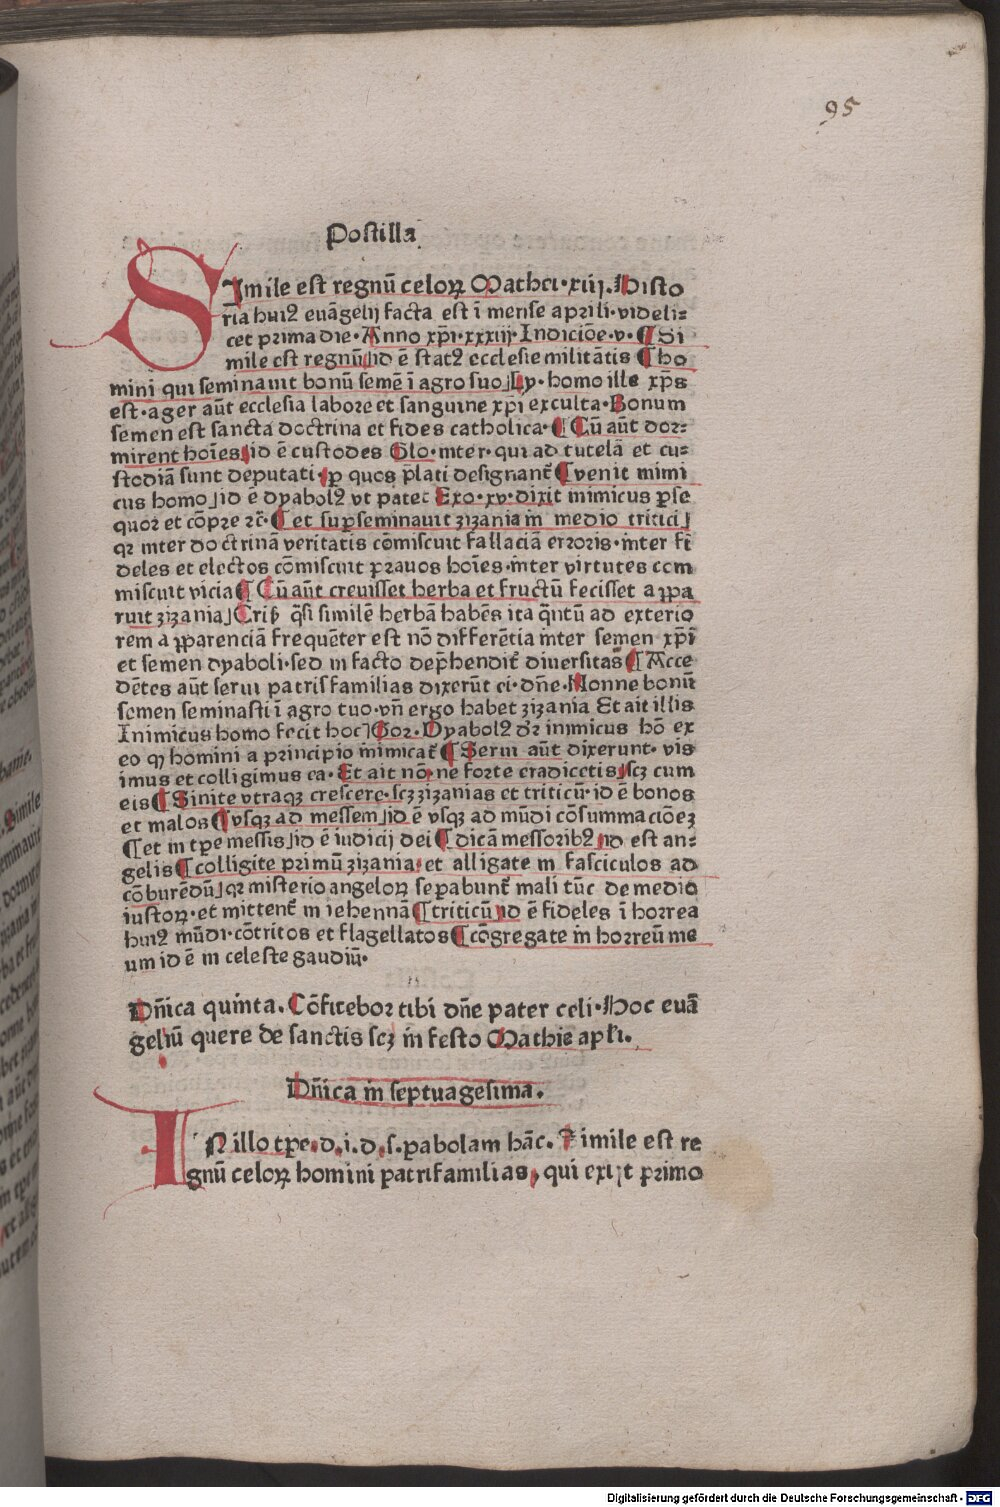 95
Postilla
Simile est regnū celoꝝ Mathei·xiij. Histo
ria huiꝰ euāgelij facta est ī mense aprili·videli⸗
cet prima die·Anno xp̄i·xxxiij·Indiciōe·v·¶Si
mile est regnū]id ē statꝰ ecclesie militātis ¶ho
mini qui seminauit bonū semē ī agro suo]Ly·homo ille xp̄s
est·ager aūt ecclesia labore et sanguine xp̄i exculta·Bonum
semen est sancta doctrina et fides catholica·¶Cū aūt dor⸗
mirent hoīes]id ē custodes Glo·inter·qui ad tutelā et cu⸗
stodiā sunt deputati·ꝑ quos p̄lati designant̄ ¶venit inimi
cus homo]id ē dyabolꝰ vt patet Exo·xv·dixit inimicus ꝑse
quor et cōpre ⁊c̄·¶et suꝑseminauit zizania in medio tritici]
qꝛ inter doctrinā veritatis cōmiscuit fallaciā erroris·inter fi
deles et electos cōmiscuit prauos hoīes·inter virtutes com
miscuit vicia¶Cū aūt creuisset herba et fructū fecisset appa
ruit zizania]Criß qͣsi similē herbā habēs ita qͣntū ad exterio
rem apparenciā frequēter est nō differētia inter semen xp̄i
et semen dyaboli·sed in facto dep̄hendit̄ diuersitas¶Acce
dētes aūt serui patrisfamilias dixerūt ei·dn̄e·Nonne bonū
semen seminasti ī agro tuo·vn̄ ergo habet zizania Et ait illis
Inimicus homo fecit hoc]Gor·Dyabolꝰ dr̄ inimicus hō ex
eo ꝙ homini a principio inimicat̄ ¶Serui aūt dixerunt·vis
imus et colligimus ea·Et ait nō·ne forte eradicetis]scꝫ cum
eis¶Sinite vtraqꝫ crescere·scꝫ zizanias et triticū·id ē bonos
et malos¶vsqꝫ ad messem]id ē vsqꝫ ad mūdi cōsummaciōeꝫ
¶et in tꝑe messis]id ē iudicij dei¶dicā messoribꝰ]id est an⸗
gelis¶colligite primū zizania·et alligate in fasciculos ad
cōburēdū]qꝛ misterio angeloꝝ seꝑabunt̄ mali tūc de medio
iustoꝝ·et mittent̄ in iehennā¶triticū]id ē fideles ī horrea
huiꝰ mūdi·cōtritos et flagellatos¶cōgregate in horreū me
um id ē in celeste gaudiū·
Dn̄ica quinta. Cōfitebor tibi dn̄e pater celi·Hoc euā
geliū quere de sanctis scꝫ in festo Mathie apl̄i.
Dn̄ica in septuagesima.
IN illo tꝑe·d·i·d·s·ꝑabolam hāc. Simile est re
gnū celoꝝ homini patrifamilias, qui exijt primo
Digitalisierung gefördert durch die Deutsche Forschungsgemeinschaft - DFG